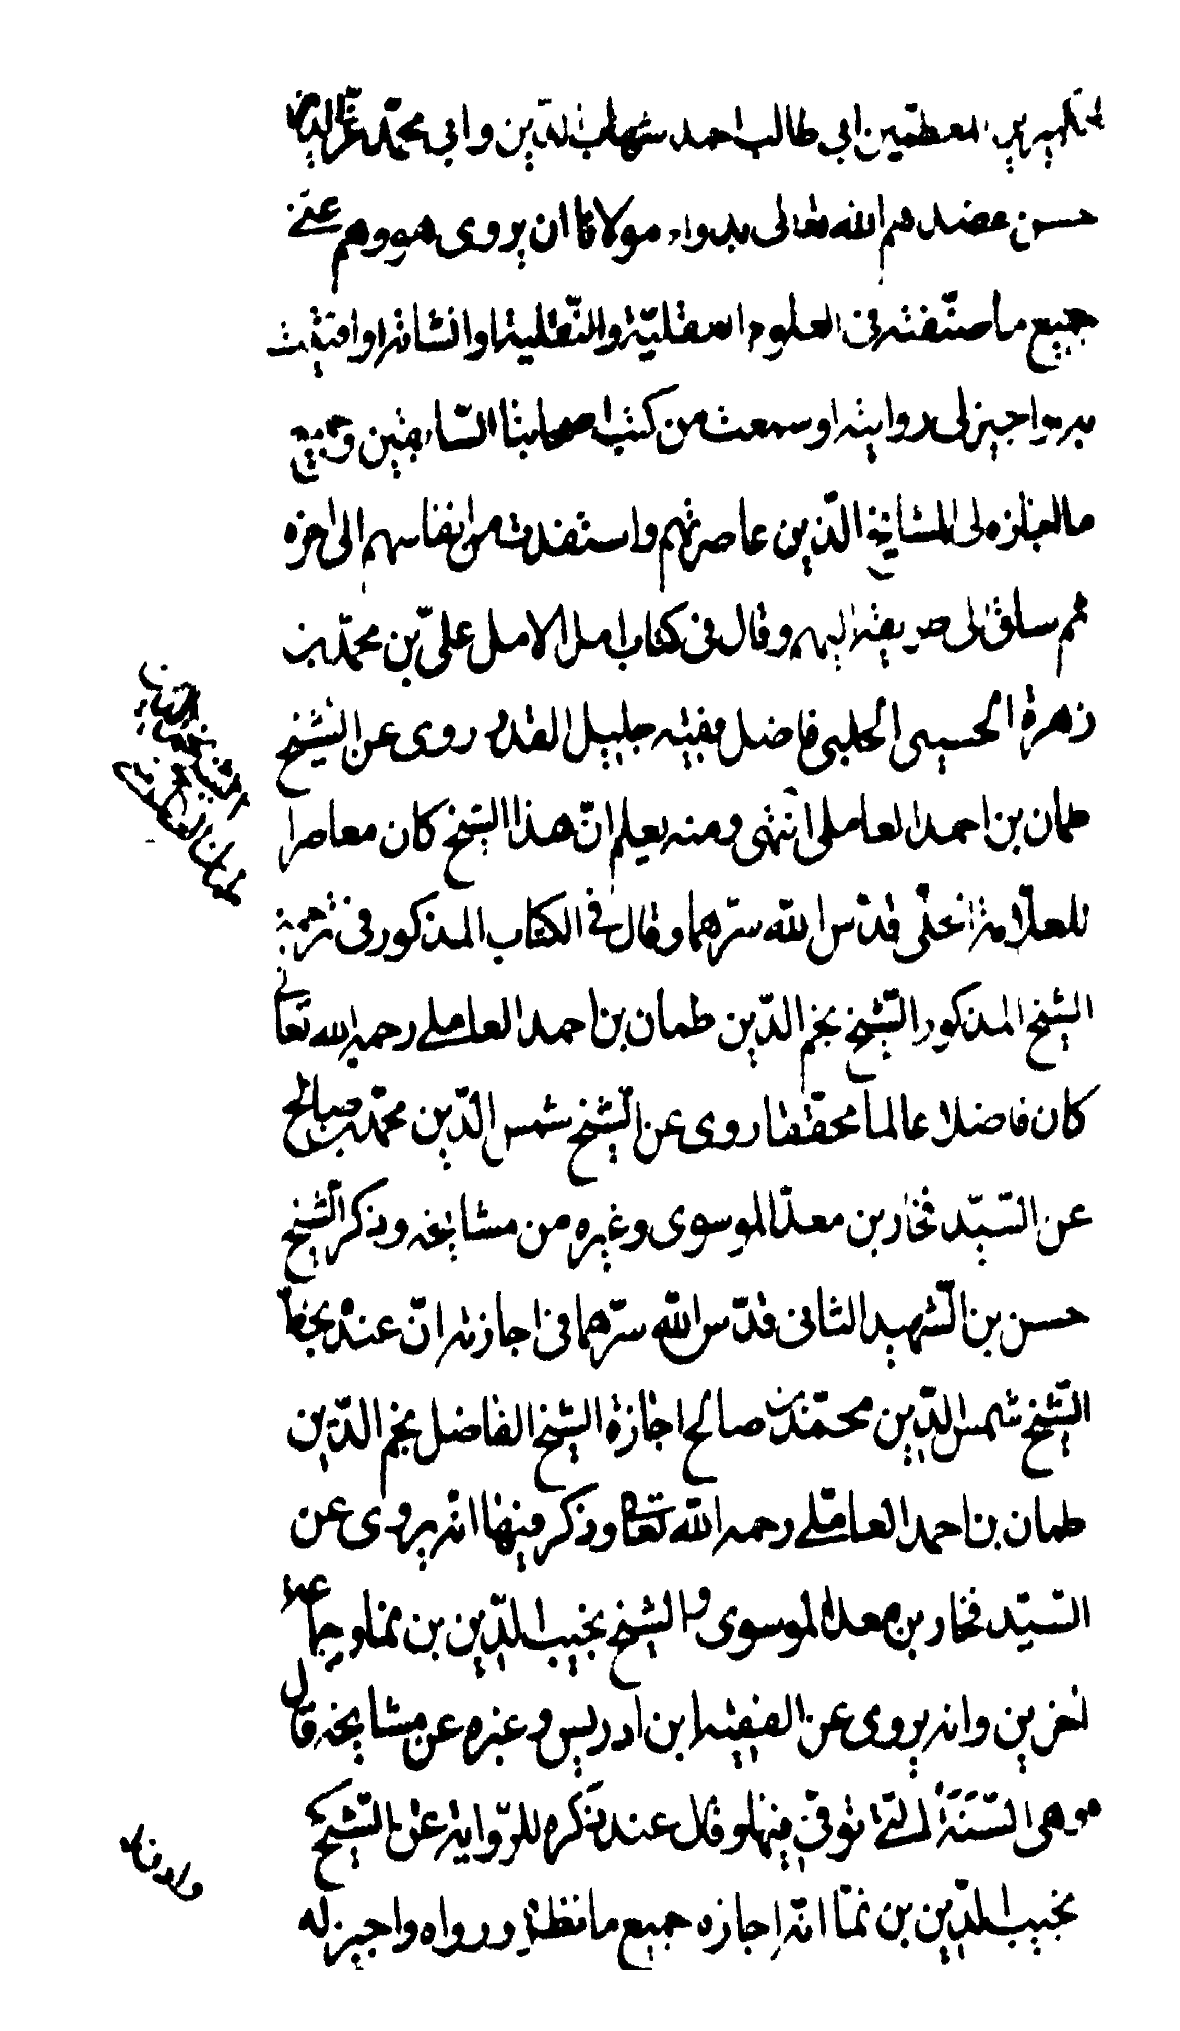 الكبيرين المعظمين ابى طالب احمد شهاب الدّين وابى محمّد عزّ الدّين
حسن عضدهم الله تعالى بدوام مولانا ان يروى هو وهم عنّى
جميع ما صنّفته فى العلوم العقليّة والنّقليّة او انشاته او افتيت
به واجيز لى روايته او سمعت من كتب اصحابنا السّابقين وجميع
ما اجازه لى المشايخ الّذين عاصرتهم واستفدت من انفاسهم الى اخره
ثم ساق الى طريقه اليهم وقال فى كتاب امل الامل علىّ بن محمّد بن
زهرة الحسينى الحلبى فاضل فقيه جليل القدر روى عن الشّيخ
طمان بن احمد العاملى انتهى ومنه يعلم انّ هذا الشّيخ كان معاصرا
للعلّامة الحلّى قدّس الله سرّهما وقال فى الكتاب المذكور فى ترجمة
الشّيخ المذكور الشّيخ نجم الدّين طمان بن احمد العاملى رحمه الله تعالى
كان فاضلا عالما محقّقا روى عن الشّيخ شمس الدّين محمّد بن صالح
عن السّيّد فخار بن معدّ الموسوى وغيره من مشايخه وذكر الشّيخ
حسن بن الشّهيد الثانى قدّس الله سرّهما فى اجازته انّ عنده بخطّ
الشّيخ شمس الدّين محمّد بن صالح اجازة الشّيخ الفاضل نجم الدّين
طمان بن احمد العاملى رحمه الله تعالى وذكر فيها انّه يروى عن
السّيّد فخار بن معد الموسوى والشّيخ نجيب الدّين بن نما وجماعة
اخرين وانه يروى عن الفقيه ابن ادريس وغيره عن مشايخه قال
وهى السّنة الّتى توفّى فيها وقال عند ذكره للرّواية عن الشّيخ
نجيب الدّين بن نمّا انّه اجازه جميع ما نظمه ورواه واجيز له